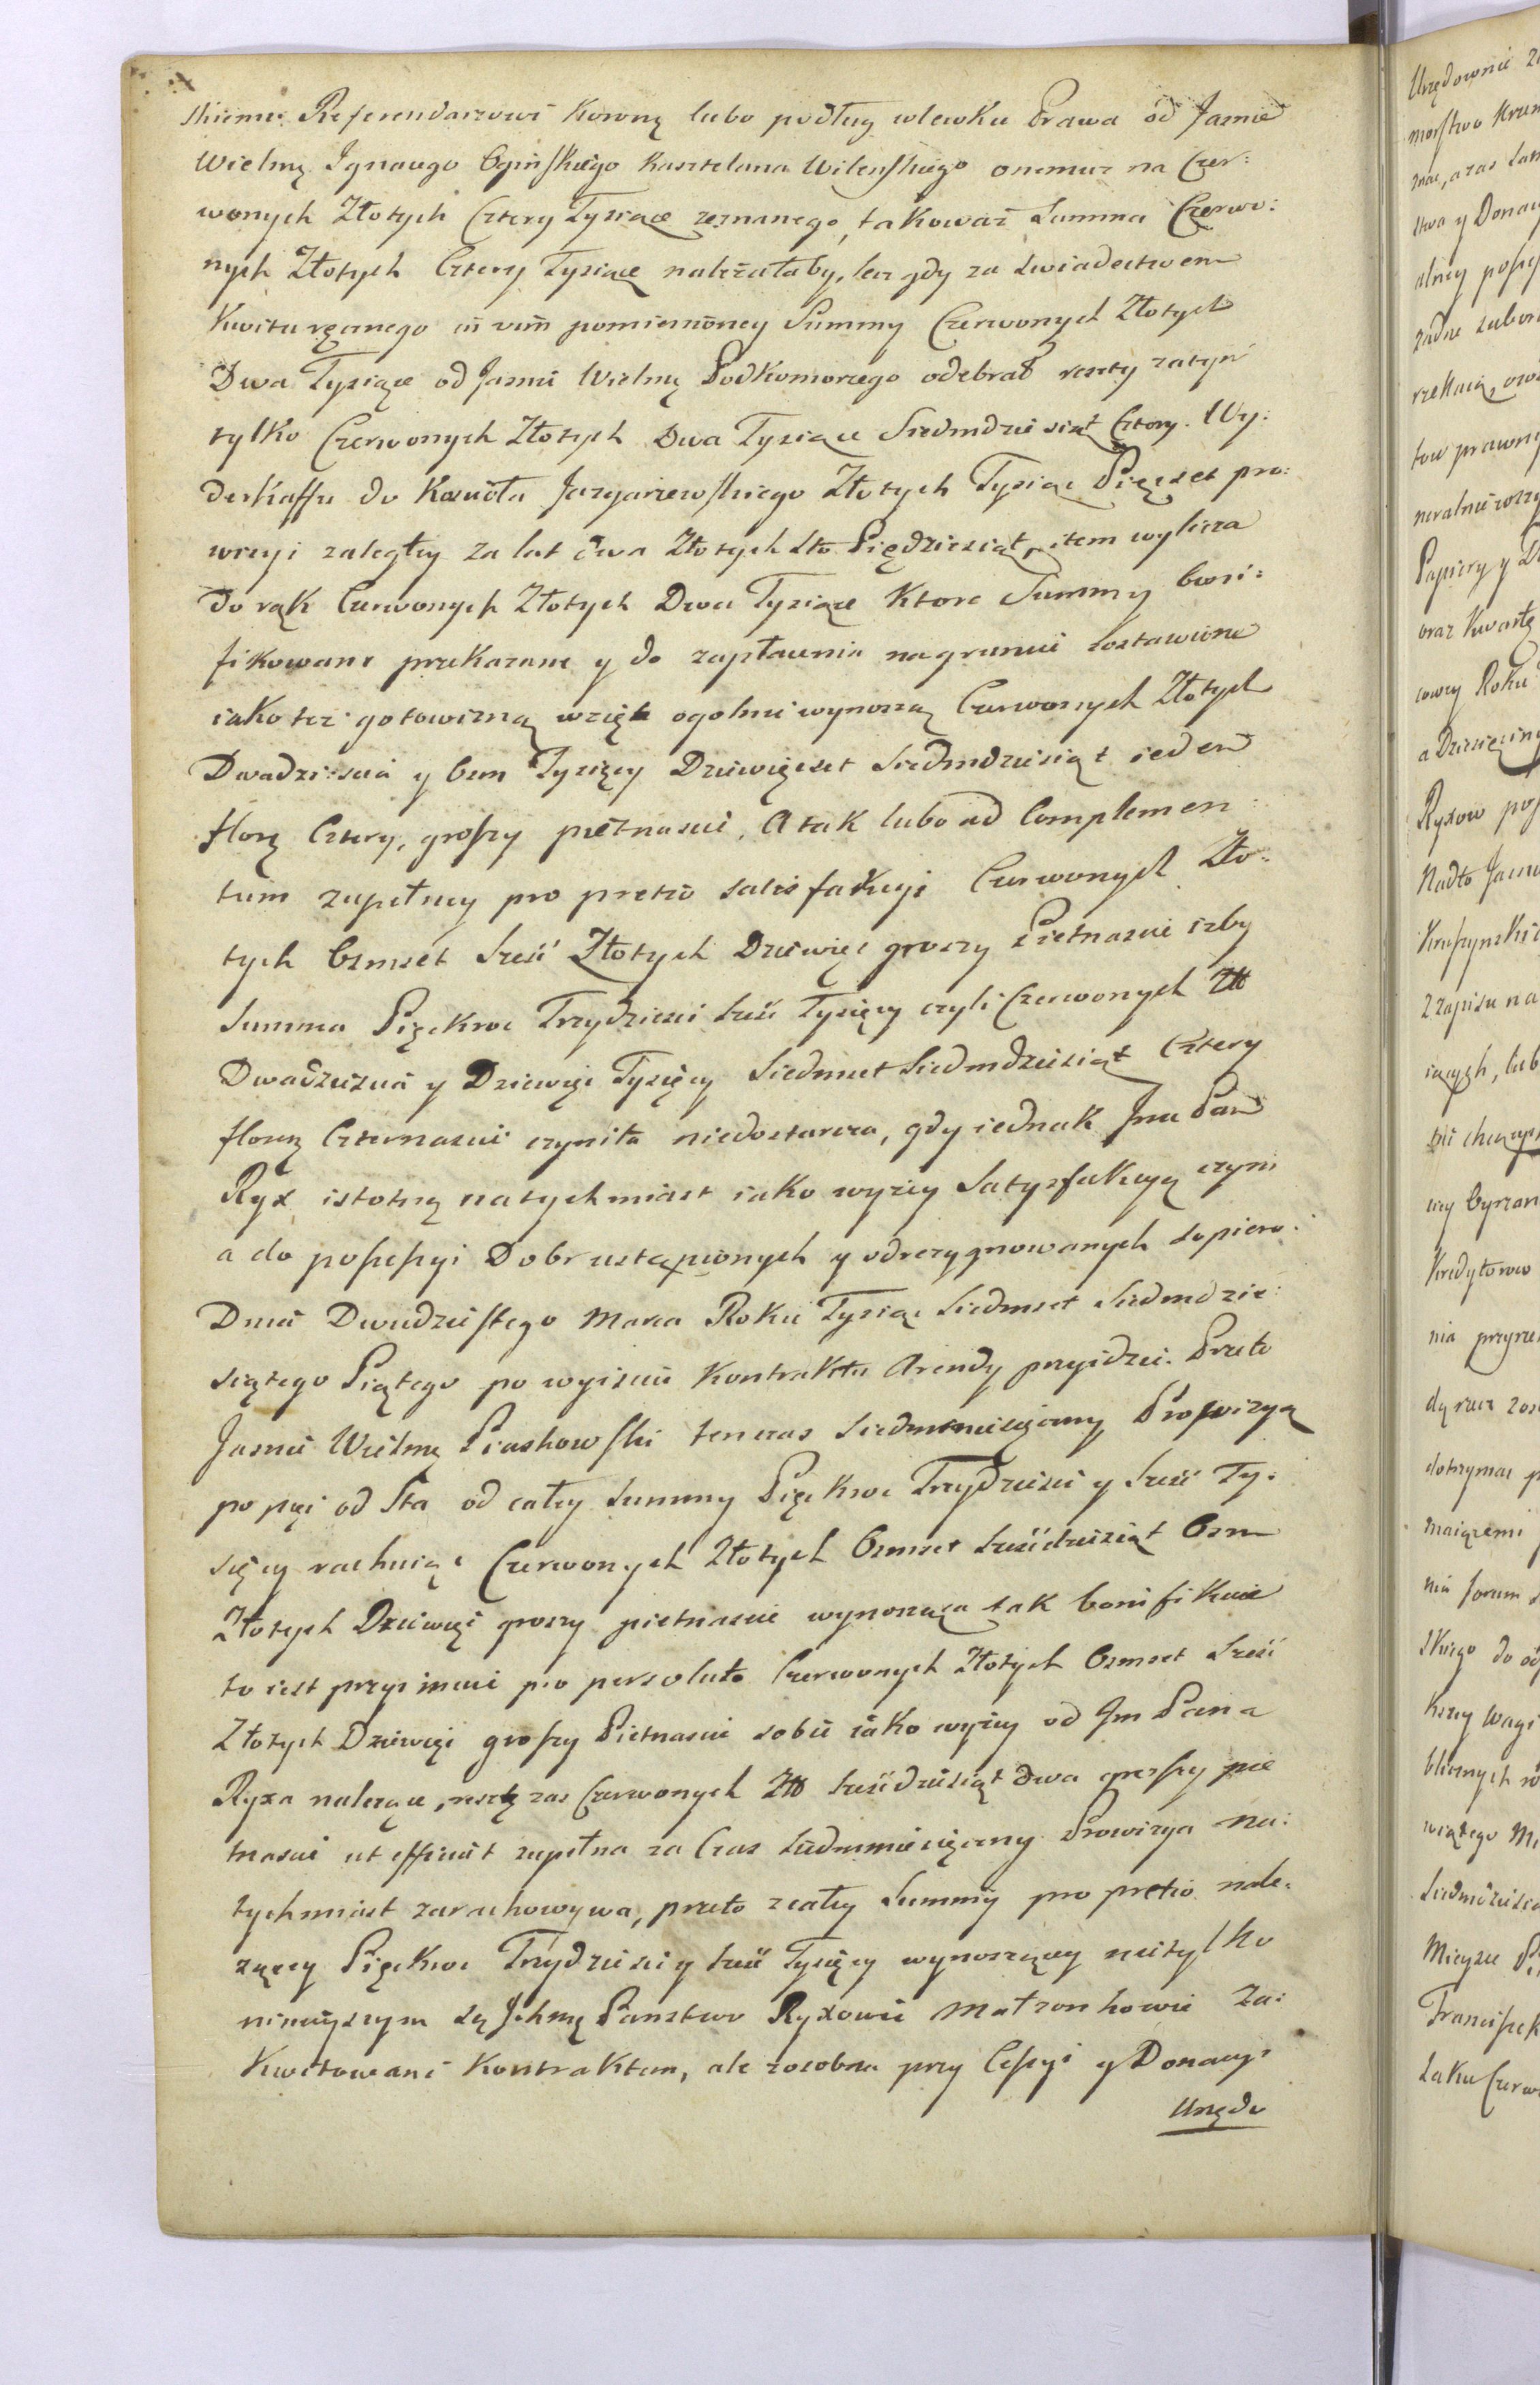 skiemu Referendarzowi Koronnę lubo podług wlewku Prawa od Jasnie
Wielmę Ignacego Ogińskiego Kasztelana Wilenskiego onemuz na Czer:
wonych Złotych Cztery Tysiące zeznanego, takowaz Summa Czerwo:
nych Złotych Cztery Tysiące należałaby, lecz gdy za swiadectwem
Kwitu ręcznego in vim pomienioney Summy Czerwonych Złotych
Dwa Tysiące od Jasnie Wielmę Podkomorzego odebrał reszty zatym
tylko Czerwonych Złotych Dwa Tysiące Siedmdziesiąt Cztery. Wy:
derkaffu do Koscioła Jazgarzewskiego Złotych Tysiąc Pięcset pro:
wizyi zaległey za lat dwa Złotych Sto Pięcdziesiąt, item wylicza
do rąk Czerwonych Złotych Dwa Tysiące Ktore Summy boni:
fikowane przekazane y do zapłacenia na gruncie zostawione
iako też gotowizną wzięte ogolnie wynoszą Czerwonych Złotych
Dwadziescia y Osm Tysięcy Dziewięcset Siedmdziesiąt ieden
florę Cztery, groszy pietnascie. A tak lubo ad Complemen:
tum zupełney pro pretio satisfakcyi Czerwonych Zło:
tych Osmset Szesć Złotych Dziewięć groszy Pietnascie izby
Summa Pięckroc Trzydziesci szesć Tysięcy czyli Czerwonych Złł
Dwadziescia y Dziewięć Tysięcy Siedmset Siedmdziesiąt Cztery
florę Czternascie czyniła niedostarcza, gdy iednak Jmć Pan
Ryx istotną natychmiast iako wyzey Satysfakcyą czyni
a do possessyi Dobr ustąpionych y odrezygnowanych dopiero
Dnia Dwudziestego Marca Roku Tysiąc Siedmset Siedmdzie:
siątego Piątego po wyisciu Kontraktu Arendy przyidzie. Przeto
Jasnie Wielmę Piaskowski ten czas siedmmiesięczny Prowizyą
po pięć od Sta od całey Summy Pięckroc Trzydziesci y Szesć Ty:
sięcy rachuiąc Czerwonych Złotych Osmset szescdziesiąt Osm
Złotych Dziewięć groszy pietnascie wynoszącą tak bonifikuie
to iest przyimuie pro persoluto Czerwonych Złotych Osmset Szesć
Złotych Dziewięć groszy Pietnascie sobie iako wyzey od Jm Pana
Ryxa należące, resztę zas Czerwonych Złł szescdziesiąt dwa groszy pie
tnascie ut efficiat zupełna za Czas siedmmiesięczny Prowizya na:
tychmiast zarachowywa, przeto z całey Summy pro pretio nale:
zącey Pięckroc Trzydziesci y szesć Tysięcy wynoszącey nietylko
ninieyszym są Ichmę Panstwo Ryxowie Małzonkowie za:
kwitowani Kontraktem, ale zosobna przy Cessyi y Donacyi
Urzędo